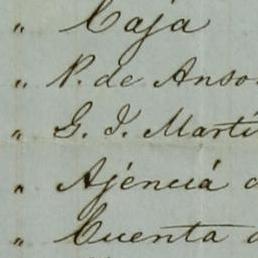 " Caja
" P. de Anso
" G. I. Martí
" Ajénciá d
" Cuenta d